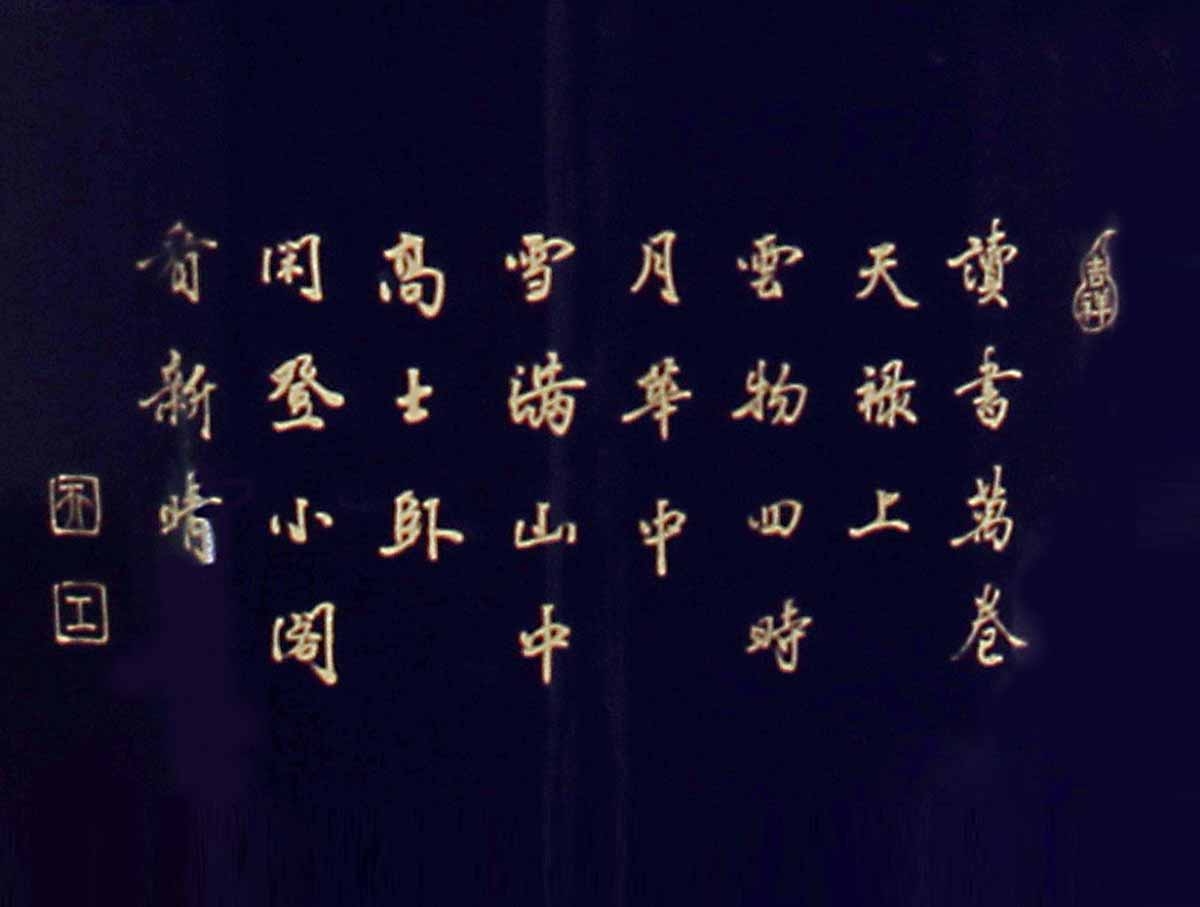 吉祥
讀書萬卷
天禄上
雲物四時
月華中
雪滿山中
高士卧
閑登小閣
看新晴
天
工